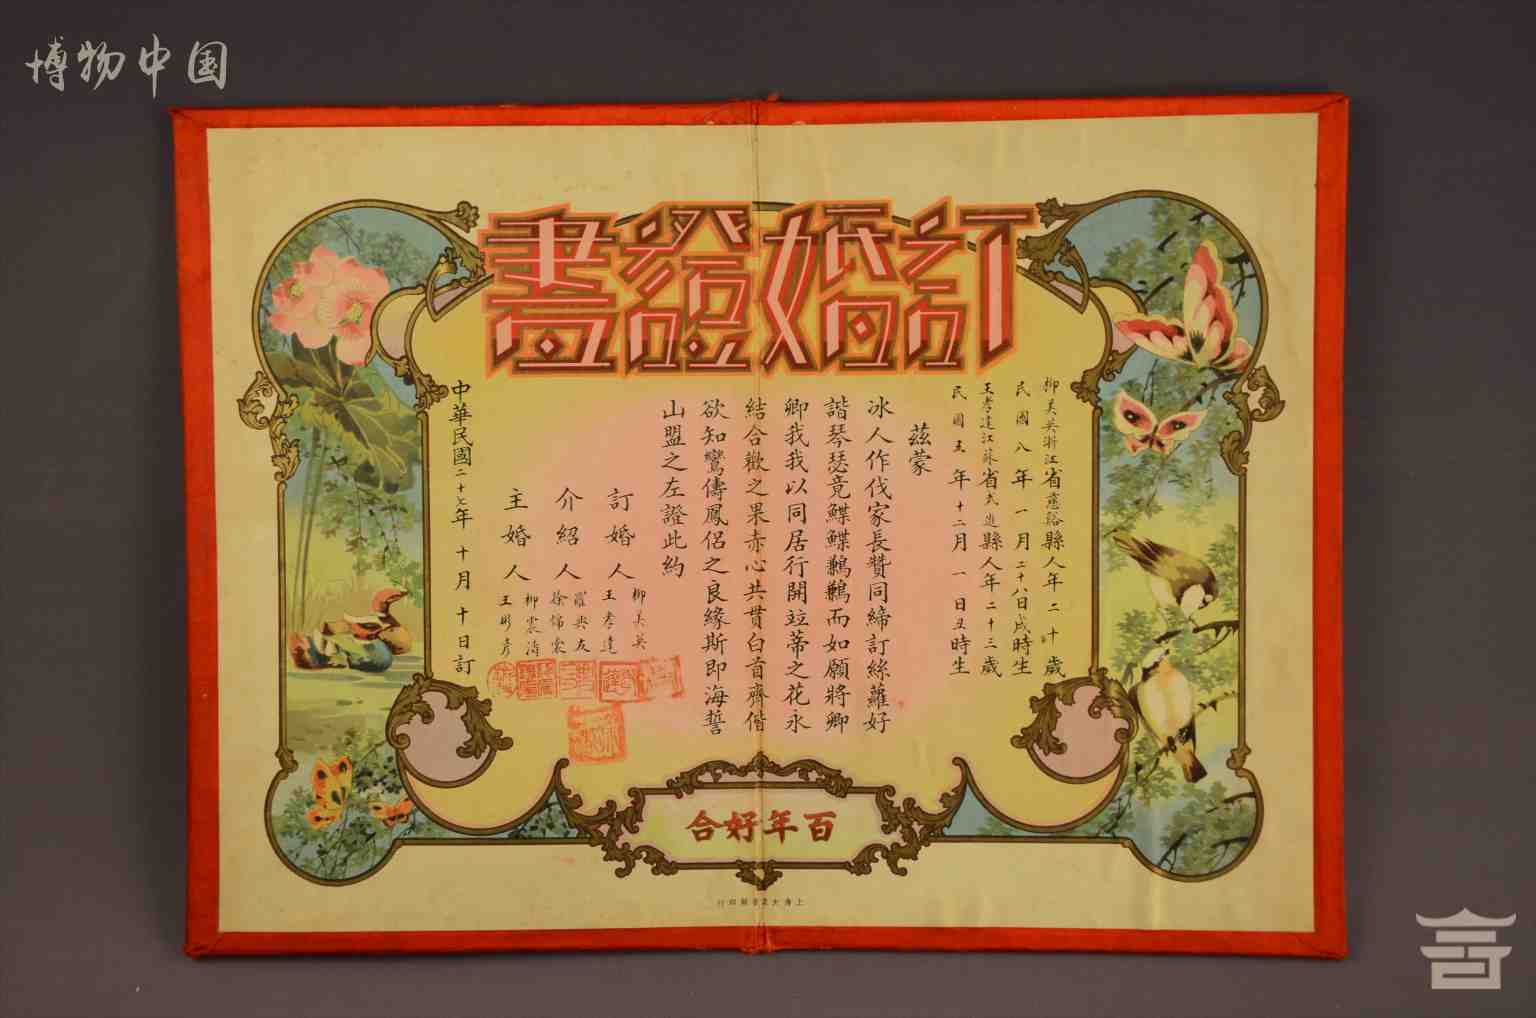 博物中国
訂婚證書
柳美英浙江省慈谿縣人年二十歲
民國八年一月二十八日戌時生
王孝達江蘇省武進縣人年二十三歲
民國五年十二月一日丑時生
茲蒙
冰人作伐家長贊同締訂絲蘿好
諧琴瑟竟鰈鰈鶼鶼而如願將卿
卿我我以同居行開竝蒂之花永
結合歡之果赤心共貫白首齊偕
欲知鸞儔鳳侶之良緣斯即海誓
山盟之左證此約
訂婚人 柳美英 王孝達
介紹人 友 徐錦棠
主婚人 柳震濤 王彬彥
中華民國二十七年十月十日訂
百年好合
上海大書局印行